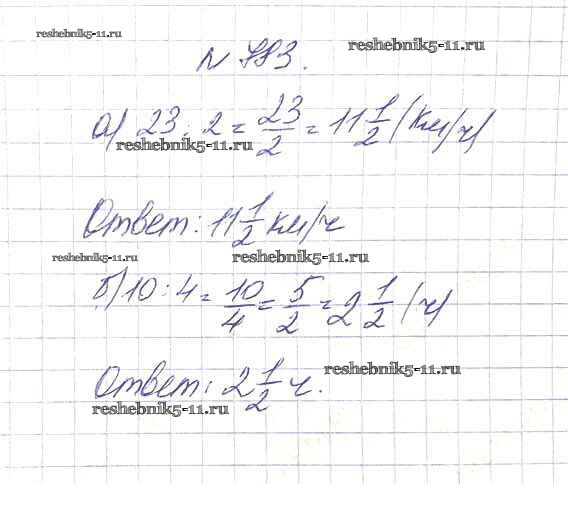 reshebnik5-11.ru
reshebnik5-11.ru
N 783.
а) 23 : 2 = 23/2 = 11 1/2 (км/ч)
reshebnik5-11.ru
Ответ: 11 1/2 км/ч
reshebnik5-11.ru
reshebnik5-11.ru
б) 10 : 4 = 10/4 = 5/2 = 2 1/2 (ч)
reshebnik5-11.ru
Ответ: 2 1/2 ч.
reshebnik5-11.ru